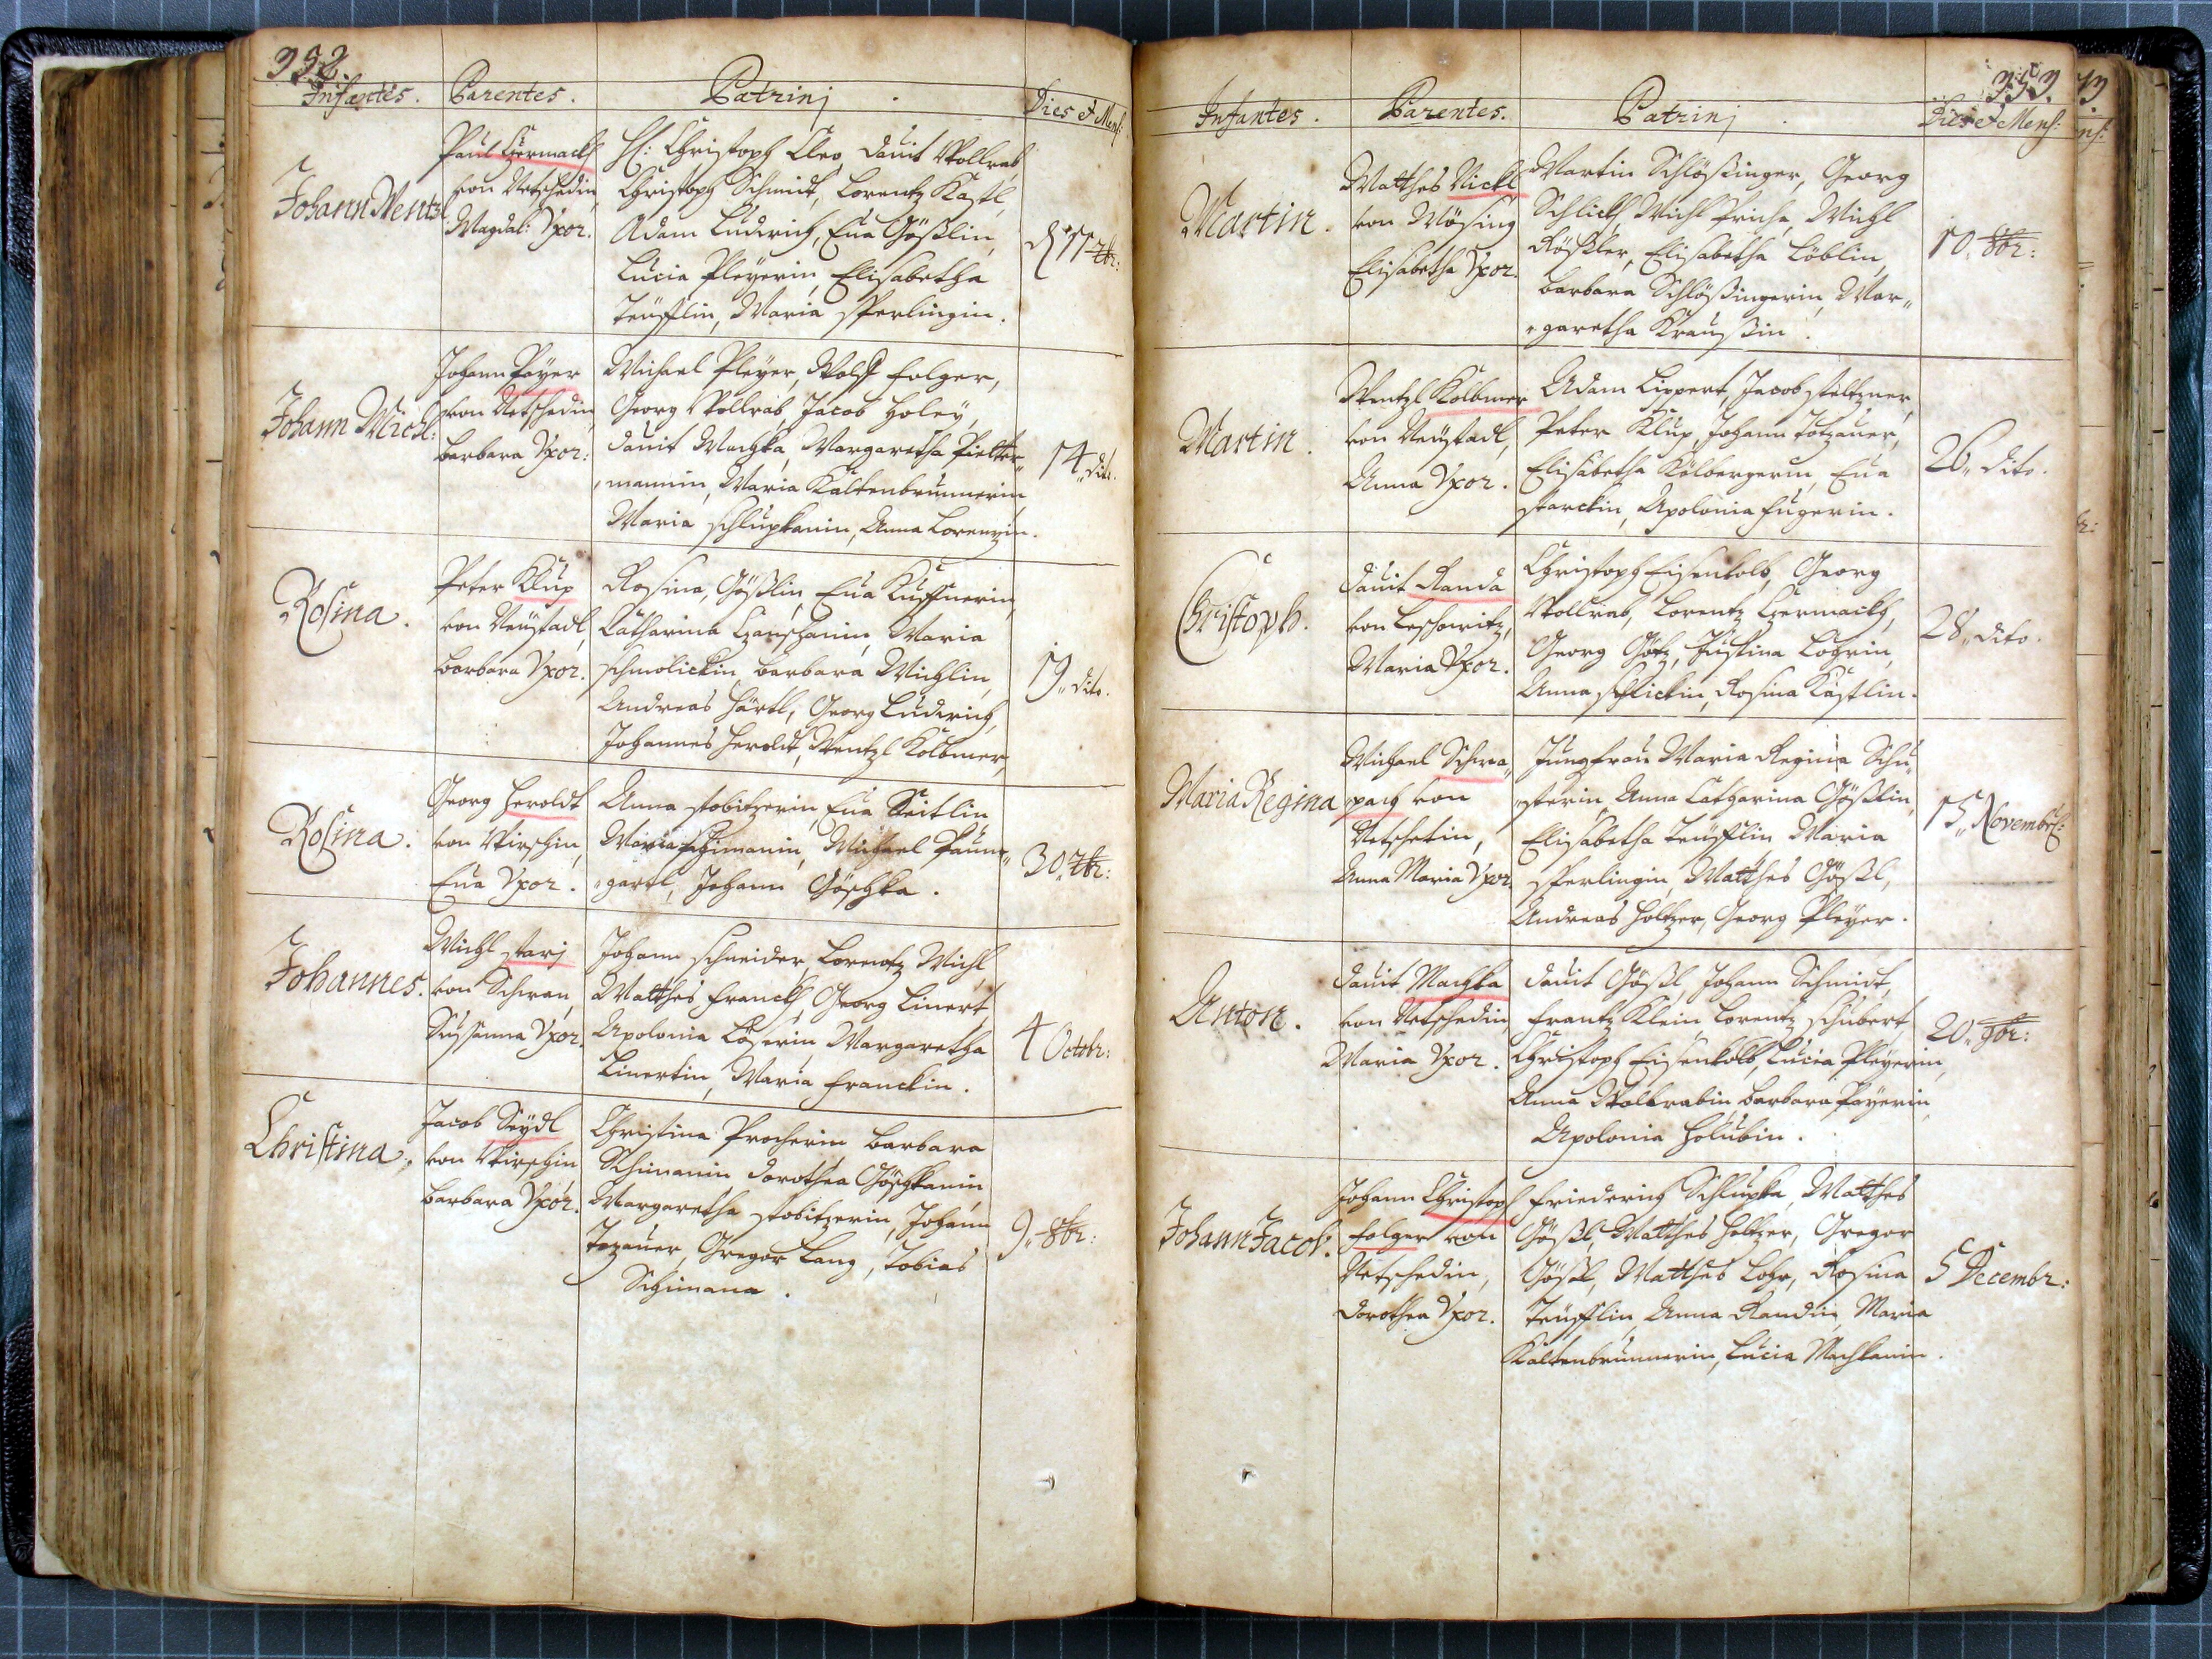 352.
Infantes. Parentes. Patrinj. Dies et Mens:
Johann Wentzl
Paul Czermackh
von Netschedin,
Magdal: Vxor.
H: Christoph Cleo, Dauit Wollrab,
Christoph Schmidt, Lorentz Kastl,
Adam Ludwich, Eua Gößlin,
Lucia Pleyerin, Elisabetha
Teüfflin, Maria Sperlingin.
d. 11 7br:
Johann Michl:
Johann Payer
von Netschedin,
Barbara Vxor:
Michael Pleyer, Wolff Folger,
Georg Wollrab, Jacob Holey,
Dauit Machka, Margaretha
mannin, Maria Kaltenbrunnerin
Maria Schlupkanin, Anna Lorenzin.
14 „ dito.
Rosina.
Peter Klup
von Neüstadl,
Barbara Vxor.
Rosina Gößlin, Eua Kuffnerin,
Catharina Maria
Schmolickin, Barbara Michlin,
Andreas Härtl, Georg Ludwich,
Johannes Heroldt, Wentzl Kolbmer,
19 „ dito.
Rosina.
Georg Heroldt
von Wirschin,
Eua Vxor.
Anna Stobitzerin, Eua Seitlin
Maria Schimanin, Michael Paum„
„gartl, Johann Göschka.
30 „ 7br:
Johannes.
Michl Starj
von Schwan,
Susanna Vxor.
Johann Schneider, Lorentz Michl,
Matthes Franckh, Georg Linert,
Apolonia Löserin, Margaretha
Linertin, Maria Franckin.
4 Octobr:
Christina.
Jacob Seydl
von Wirschin
Barbara Vxor.
Christina Procherin Barbara
Schimanin, Dorothea Göschkanin
Margaretha Stobitzerin, Johann
Totzauer, Gregor Lang, Tobias
Schimana.
9 „ 8br:
353.
Infantes. Parentes. Patrinj. Dies et Mens:
Martin.
Matthes Nickl
von Mösing
Elisabetha Vxor.
Martin Schlößinger, Georg
Schlickh, Michl Frisch, Michl
Rößler, Elisabetha Löblin,
Barbara Schlößingerin, Mar„
„garetha Kraußin.
10. 8br:
Martin.
Wentzl Kolbmer
von Neüstadl,
Anna Vxor.
Adam Lippert, Jacob Steltzner,
Peter Klup, Johann Totzauer,
Elisabetha Kölbergerin, Eua
Starckin, Apolonia Fugerin.
26 „ dito.
Christoph.
Dauit Randa
von Leschowitz,
Maria Vxor.
Christoph Eisenkolb, Georg
Wollrab, Lorentz Czermackh,
Georg Götz, Justina Lohrin,
Anna Schlickin, Rosina Kastlin.
28 „ dito.
Maria Regina
Michael Schwa„
„pach von
Netschetin,
Anna Maria Vxor.
Jungfrau Maria Regina Schu„
„sterin, Anna Catharina Gößlin,
Elisabetha Teüfflin Maria
Sperlingin, Matthes Gößl,
Andreas Holtzer, Georg Pleyer.
15 „ Novembr:
Anton.
Dauit Machka
von Netschedin
Maria Vxor.
Dauit Gößl, Johann Schmidt,
Frantz Klein, Lorentz Schubert
Christoph Eisenkolb, Lucia Pleyerin,
Anna Wollrabin Barbara Payerin
Apolonia Holubin.
20 „ 9br:
Johann Jacob.
Johann Christoph
Folger von
Netschedin,
Dorothea Vxor.
Friederich Schlupka, Matthes
Gößl, Matthes Holtzer, Gregor
Gößl, Matthes Lohr, Rosina
Teüfflin, Anna Randin, Maria
Kaltenbrunnerin, Lucia Machkanin.
5 Decembr: